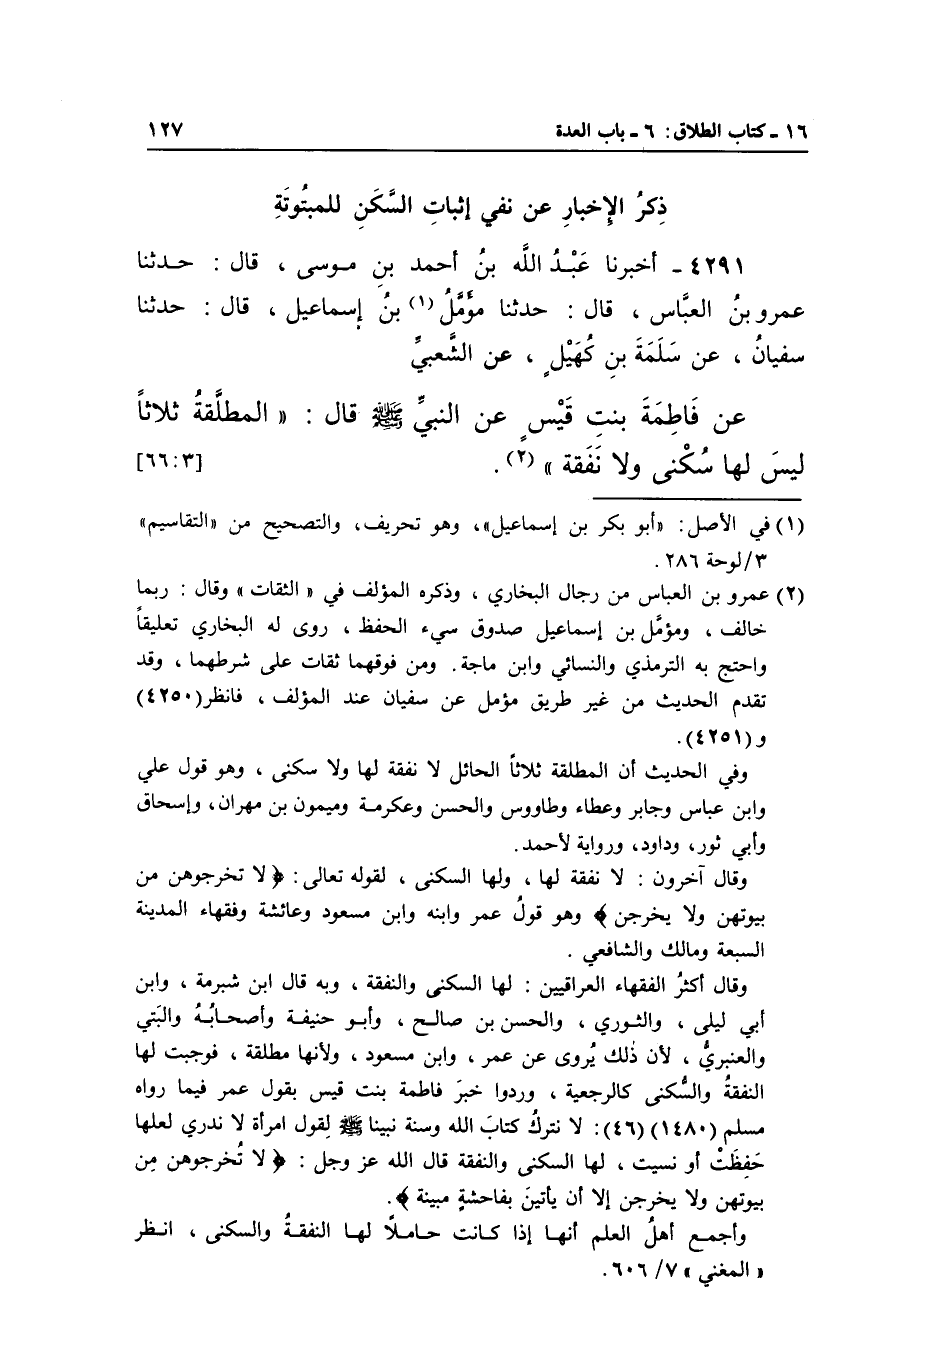 ١٦ - كتاب الطلاق: ٦ - باب العدة ١٢٧
ذِكرُ الإِخبارِ عن نفي إثباتِ السَّكَنِ للمبتُوتَةِ
٤٢٩١ - أخبرنا عَبْدُ اللَّه بنُ أحمد بنِ موسى ، قال : حدثنا
عمرو بنُ العبَّاس ، قال : حدثنا مؤَمَّلُ (١) بنُ إسماعيل ، قال : حدثنا
سفيانُ ، عن سَلَمَةَ بنِ كُهَيْلٍ ، عن الشَّعبيِّ
عن فَاطِمَةَ بنتِ قَيْسٍ عن النبيِّ ﷺ قال : « المطلَّقةُ ثلاثاً
ليسَ لها سُكْنى ولا نَفَقة » (٢) . [٣ : ٦٦]
(١) في الأصل: «أبو بكر بن إسماعيل»، وهو تحريف، والتصحيح من «التقاسيم»
٣/لوحة ٢٨٦ .
(٢) عمرو بن العباس من رجال البخاري ، وذكره المؤلف في « الثقات » وقال : ربما
خالف ، ومؤمَّل بن إسماعيل صدوق سيء الحفظ ، روى له البخاري تعليقاً
واحتج به الترمذي والنسائي وابن ماجة. ومن فوقهما ثقات على شرطهما ، وقد
تقدم الحديث من غير طريق مؤمل عن سفيان عند المؤلف ، فانظر (٤٢٥٠)
و (٤٢٥١).
وفي الحديث أن المطلقة ثلاثاً الحائل لا نفقة لها ولا سكنى ، وهو قول علي
وابن عباس وجابر وعطاء وطاووس والحسن وعكرمة وميمون بن مهران، وإسحاق
وأبي ثور، وداود، ورواية لأحمد.
وقال آخرون : لا نفقة لها ، ولها السكنى ، لقوله تعالى: ﴿ لا تخرجوهن من
بيوتهن ولا يخرجن ﴾ وهو قولُ عمر وابنه وابن مسعود وعائشة وفقهاء المدينة
السبعة ومالك والشافعي .
وقال أكثرُ الفقهاء العراقيين : لها السكنى والنفقة ، وبه قال ابن شبرمة ، وابن
أبي ليلى ، والثوري ، والحسن بن صالح ، وأبو حنيفة وأصحابُهُ والبَتي
والعنبريُّ ، لأن ذٰلك يُروى عن عمر ، وابن مسعود ، ولأنها مطلقة ، فوجبت لها
النفقةُ والسُّكنى كالرجعية ، وردوا خبرَ فاطمة بنت قيس بقول عمر فيما رواه
مسلم (١٤٨٠) (٤٦): لا نتركُ كتابَ الله وسنة نبينا ﷺ لِقول امرأة لا ندري لعلها
حَفِظَتْ أو نسيت ، لها السكنى والنفقة قال الله عز وجل : ﴿ لا تُخرجوهن مِن
بيوتهن ولا يخرجن إلا أن يأتينَ بفاحشةٍ مبينة ﴾.
وأجمع أهلُ العلم أنها إذا كانت حاملاً لها النفقةُ والسكنى ، انظر
« المغني » ٧/ ٦٠٦.